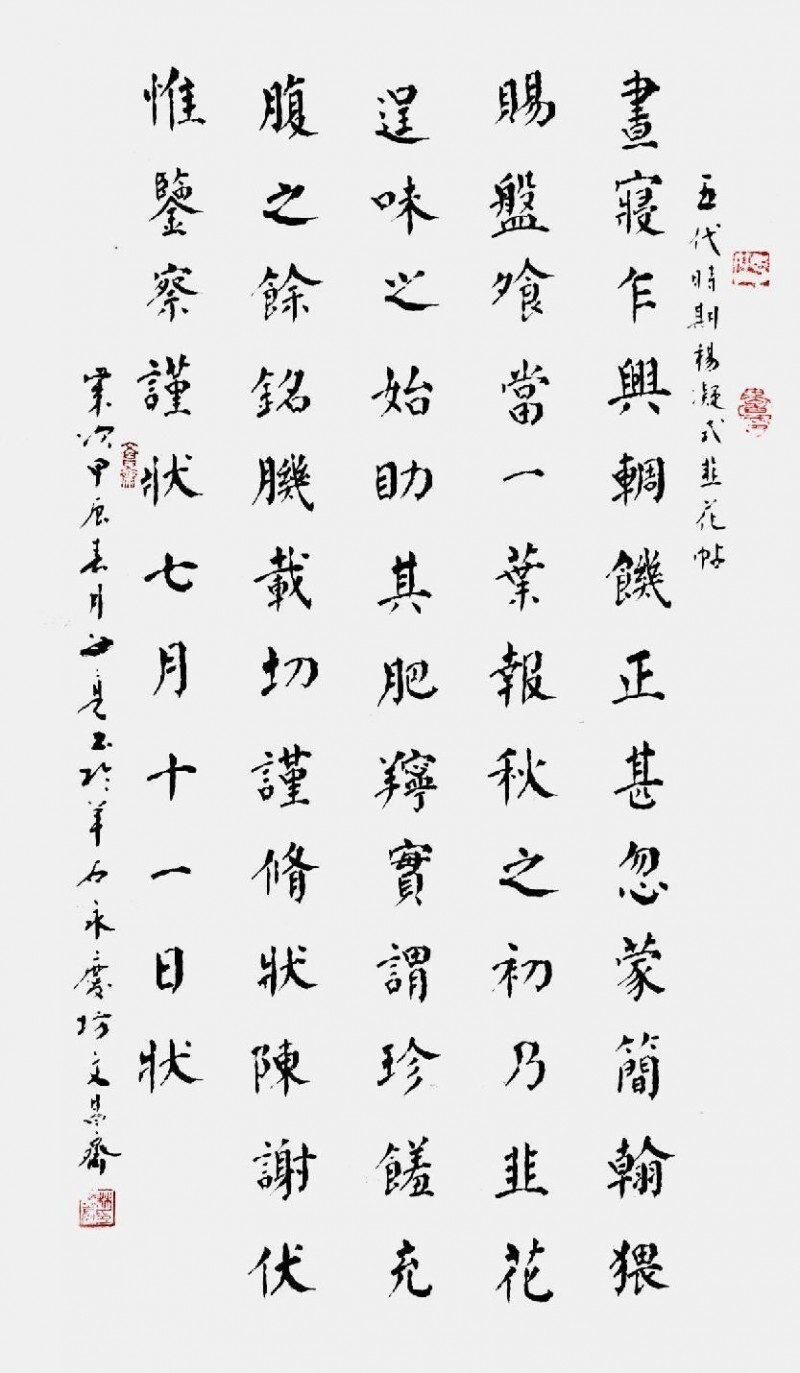 五代時期楊凝式韭花帖
晝寢乍興輖饑正甚忽蒙簡翰猥
賜盤飧當一葉報秋之初乃韭花
逞味之始助其肥羜實謂珍羞充
腹之餘銘肌載切謹脩狀陳謝伏
惟鑒察謹狀七月十一日狀
甲辰春月 亮书於羊石永慶坊文昌齋